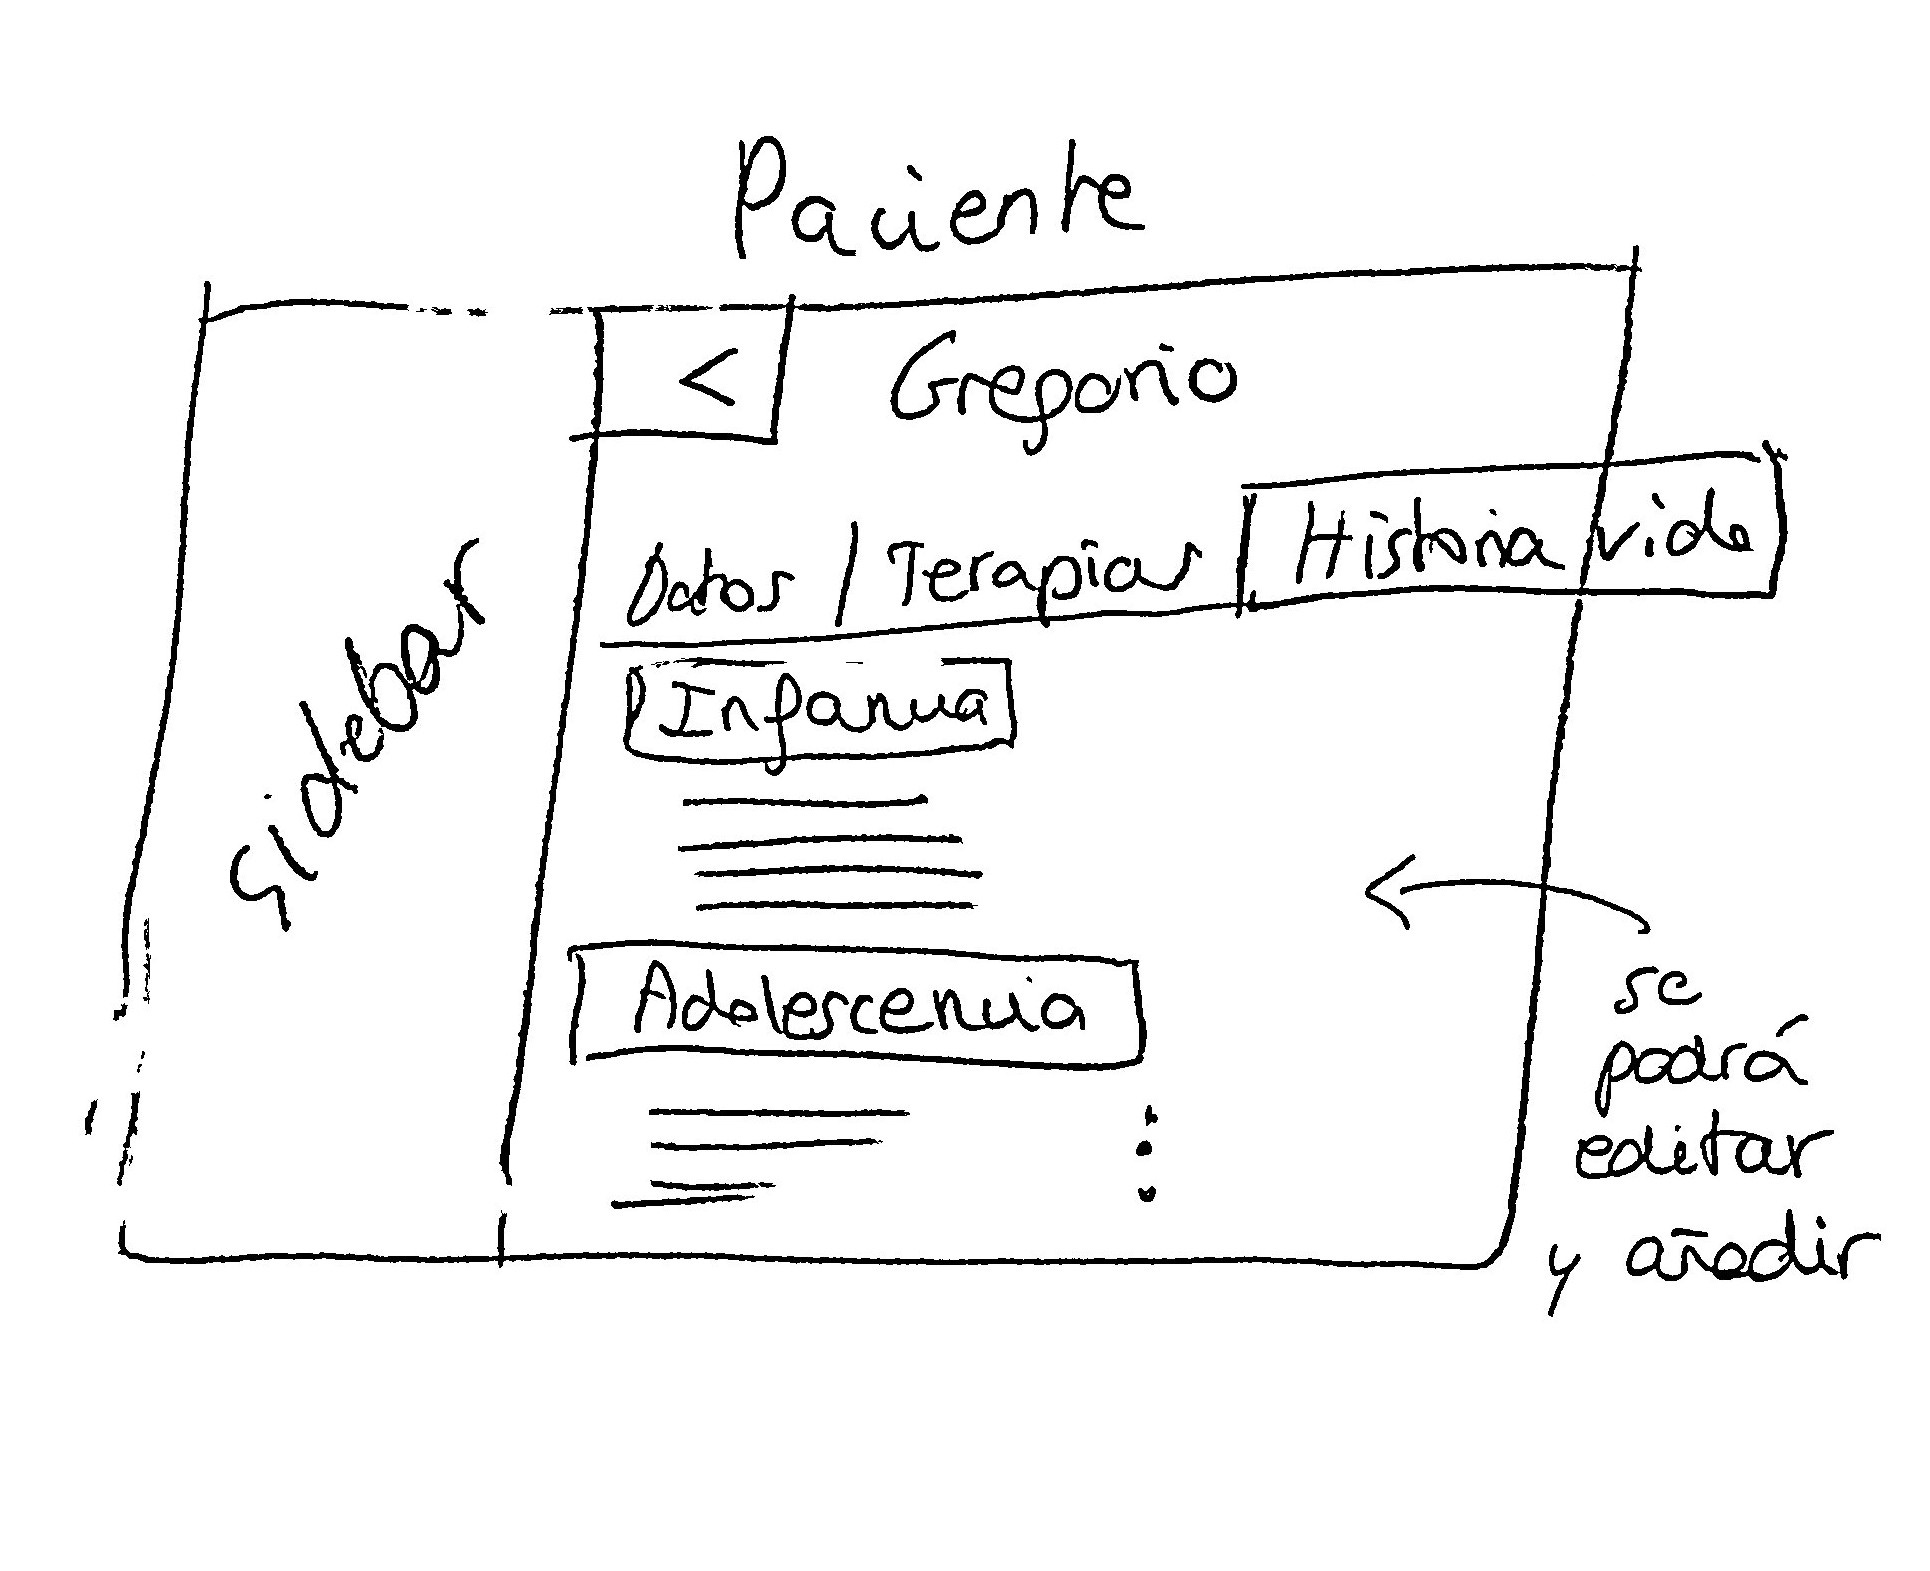 Paciente
< Gregorio
Datos / Terapias Historia vida
Sidebar
Infancia
Adolescencia
se
podrá
editar
y añadir